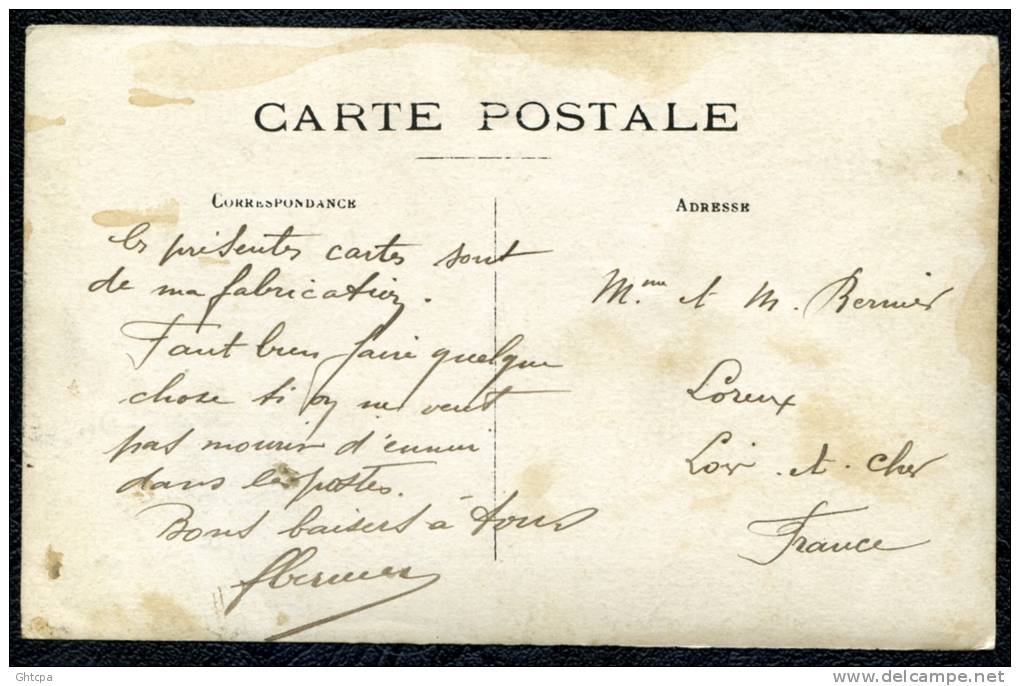 CARTE POSTALE
CORRESPONDANCE
les présentes cartes sont
de ma fabrication.
Faut bien faire quelque
chose si on ne veut
pas mourir d'ennui
dans les postes.
Bons baisers à tous
ADRESSE
Mme et M. Bernier
Loreux
Loir-et-cher
France
Ghtcpa
delcampe.net